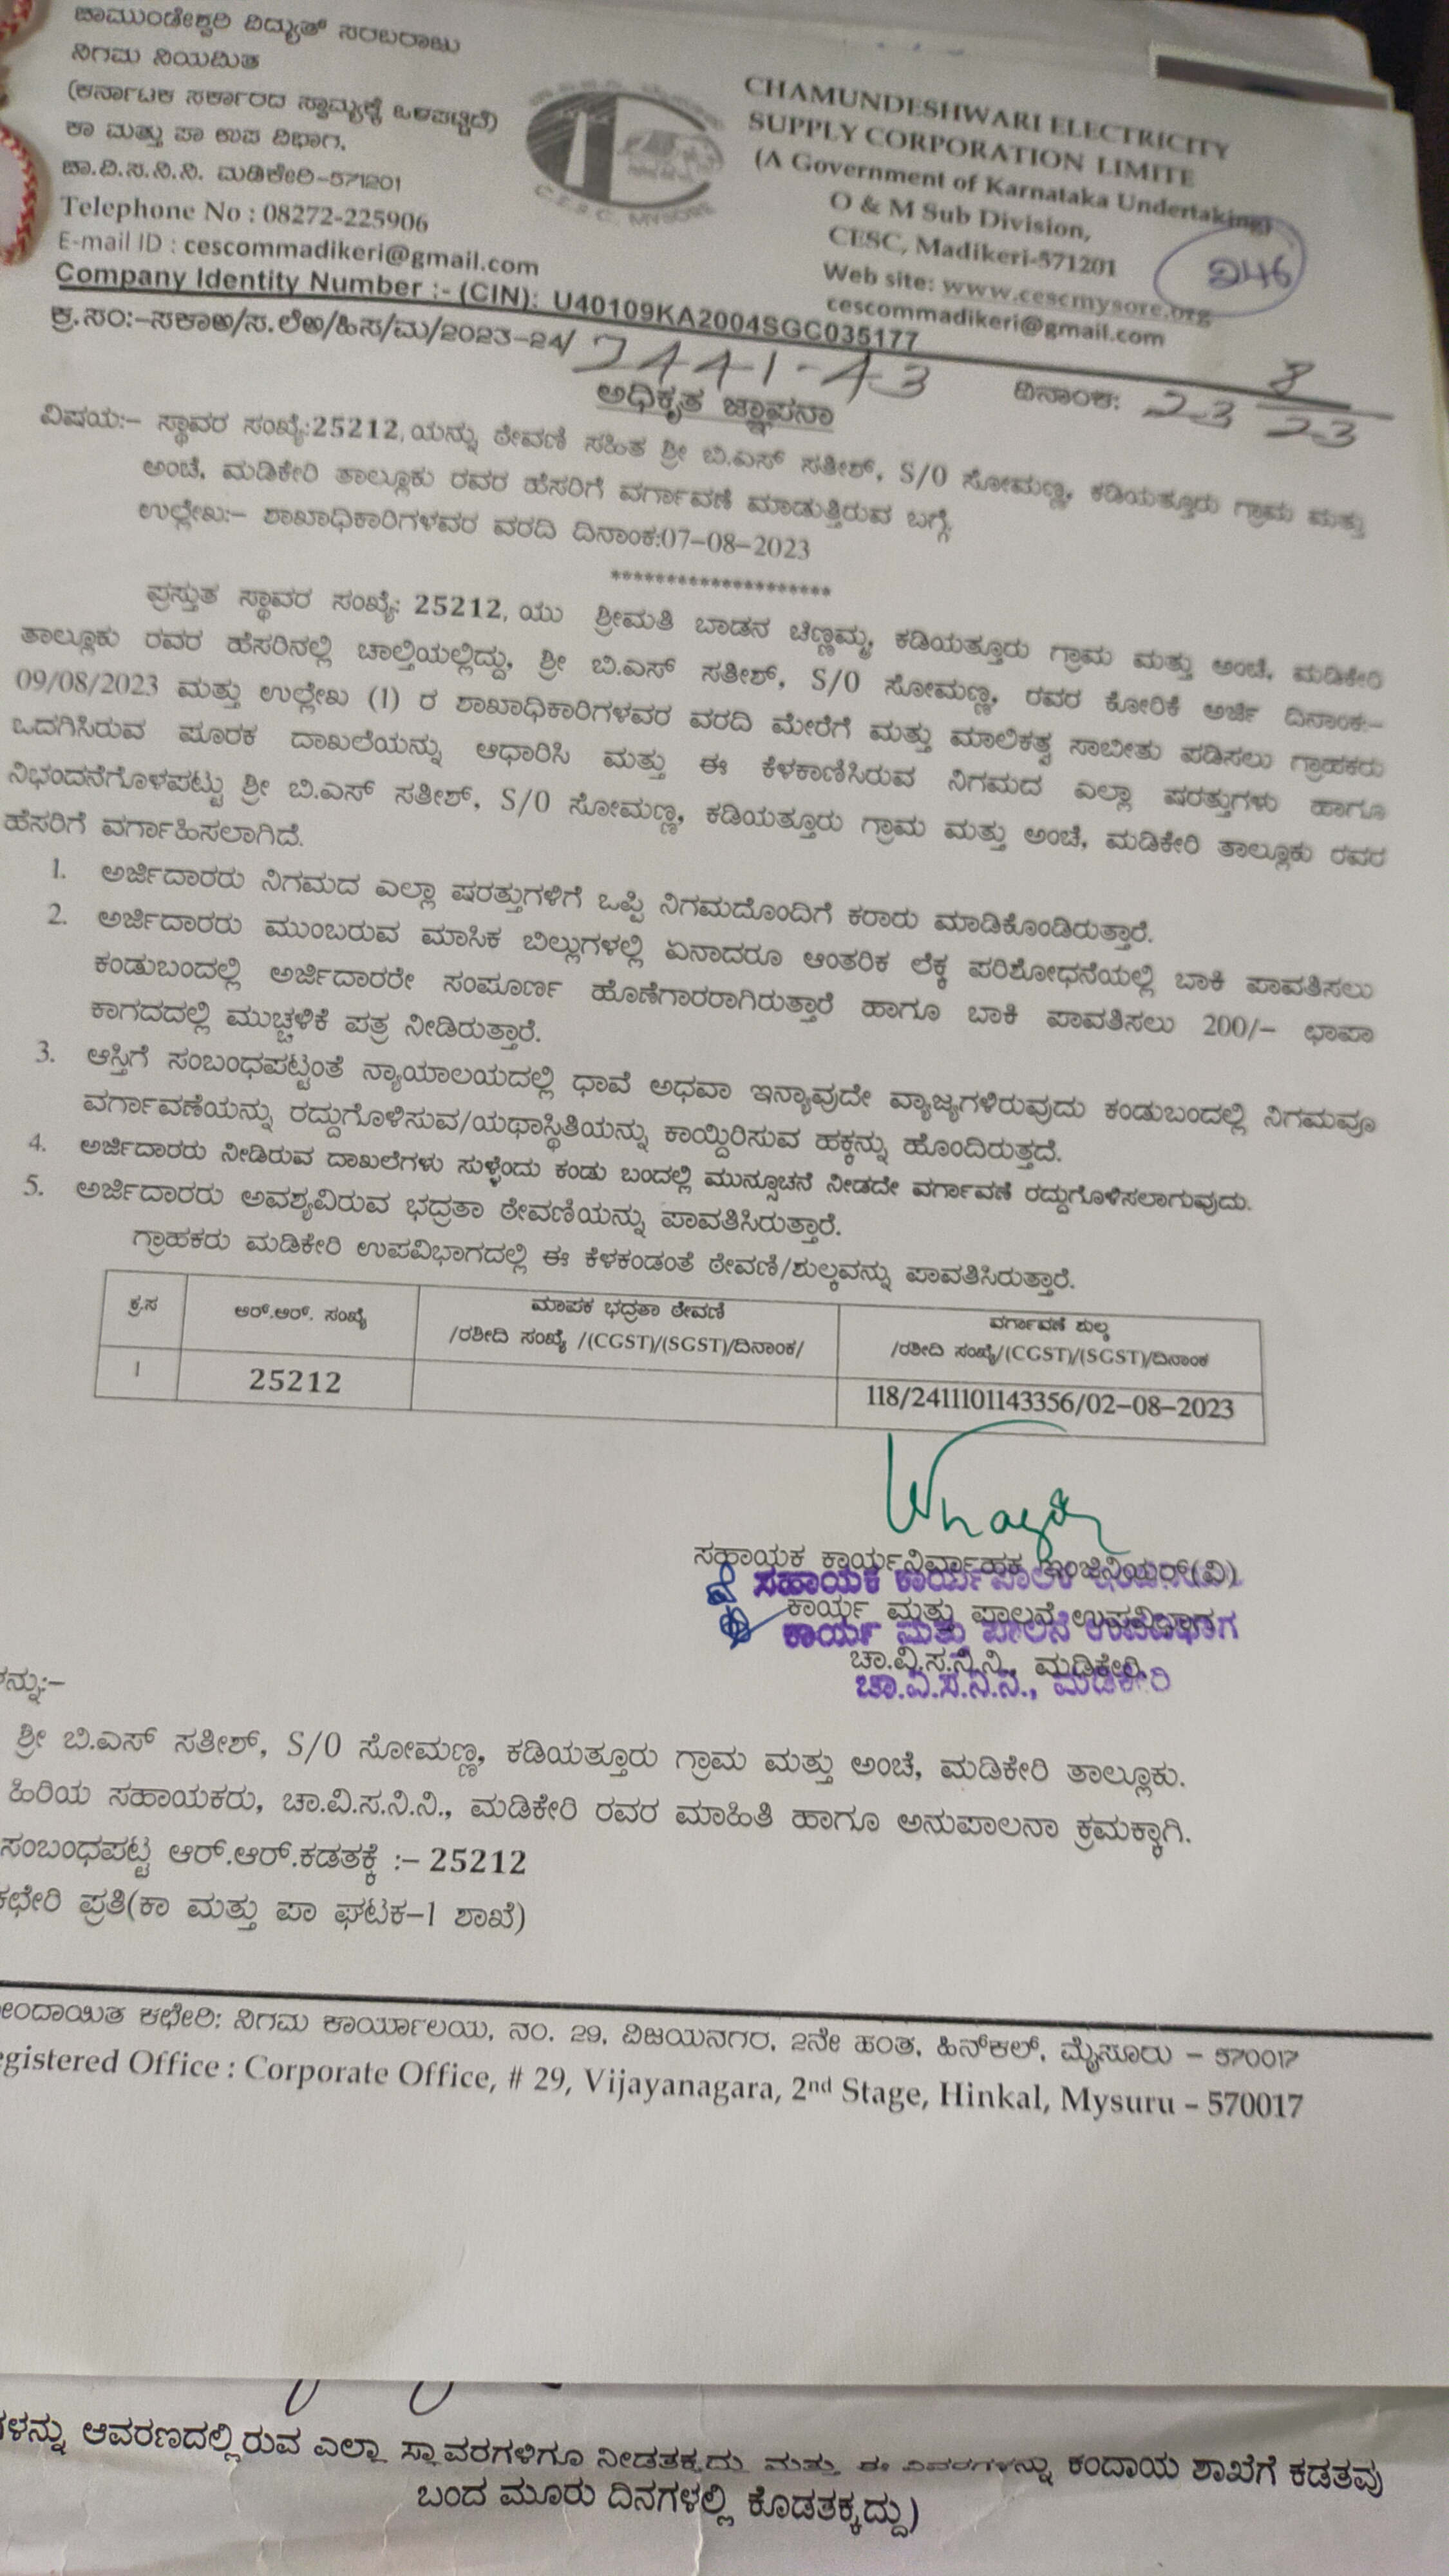 ಚಾಮುಂಡೇಶ್ವರಿ ವಿದ್ಯುತ್ ಸರಬರಾಜು
ನಿಗಮ ನಿಯಮಿತ
(ಕರ್ನಾಟಕ ಸರ್ಕಾರದ ಸ್ವಾಮ್ಯಕ್ಕೆ ಒಳಪಟ್ಟಿದೆ)
ಕಾ ಮತ್ತು ಪಾ ಉಪ ವಿಭಾಗ,
ಚಾ.ವಿ.ಸ.ನಿ.ನಿ. ಮಡಿಕೇರಿ-571201
Telephone No : 08272-225906
E-mail ID : cescommadikeri@gmail.com
C.E.S.C. MYSORE
CHAMUNDESHWARI ELECTRICITY
SUPPLY CORPORATION LIMITE
(A Government of Karnataka Undertaking)
O & M Sub Division,
CESC, Madikeri-571201
Web site: www.cescmysore.org
cescommadikeri@gmail.com
246
Company Identity Number :- (CIN): U40109KA2004SGC035177
ಕ್ರ.ಸಂ:-ಸಕಾಅ/ಸ.ಲೆಅ/ಹಿಸ/ಮ/೨೦೨೩-೨೪/ 2441-43 ದಿನಾಂಕ: 23 8/23
ಅಧಿಕೃತ ಜ್ಞಾಪನಾ
ವಿಷಯ:- ಸ್ಥಾವರ ಸಂಖ್ಯೆ:25212, ಯನ್ನು ಠೇವಣಿ ಸಹಿತ ಶ್ರೀ ಬಿ.ಎಸ್ ಸತೀಶ್, S/0 ಸೋಮಣ್ಣ, ಕಡಿಯತ್ತೂರು ಗ್ರಾಮ ಮತ್ತು
ಅಂಚೆ, ಮಡಿಕೇರಿ ತಾಲ್ಲೂಕು ರವರ ಹೆಸರಿಗೆ ವರ್ಗಾವಣೆ ಮಾಡುತ್ತಿರುವ ಬಗ್ಗೆ.
ಉಲ್ಲೇಖ:- ಶಾಖಾಧಿಕಾರಿಗಳವರ ವರದಿ ದಿನಾಂಕ:07-08-2023
********************
ಪ್ರಸ್ತುತ ಸ್ಥಾವರ ಸಂಖ್ಯೆ: 25212, ಯು ಶ್ರೀಮತಿ ಬಾಡನ ಚಿಣ್ಣಮ್ಮ, ಕಡಿಯತ್ತೂರು ಗ್ರಾಮ ಮತ್ತು ಅಂಚೆ, ಮಡಿಕೇರಿ
ತಾಲ್ಲೂಕು ರವರ ಹೆಸರಿನಲ್ಲಿ ಚಾಲ್ತಿಯಲ್ಲಿದ್ದು, ಶ್ರೀ ಬಿ.ಎಸ್ ಸತೀಶ್, S/0 ಸೋಮಣ್ಣ, ರವರ ಕೋರಿಕೆ ಅರ್ಜಿ ದಿನಾಂಕ:-
09/08/2023 ಮತ್ತು ಉಲ್ಲೇಖ (1) ರ ಶಾಖಾಧಿಕಾರಿಗಳವರ ವರದಿ ಮೇರೆಗೆ ಮತ್ತು ಮಾಲಿಕತ್ವ ಸಾಬೀತು ಪಡಿಸಲು ಗ್ರಾಹಕರು
ಒದಗಿಸಿರುವ ಪೂರಕ ದಾಖಲೆಯನ್ನು ಆಧಾರಿಸಿ ಮತ್ತು ಈ ಕೆಳಕಾಣಿಸಿರುವ ನಿಗಮದ ಎಲ್ಲಾ ಷರತ್ತುಗಳು ಹಾಗೂ
ನಿಭಂದನೆಗೊಳಪಟ್ಟು ಶ್ರೀ ಬಿ.ಎಸ್ ಸತೀಶ್, S/0 ಸೋಮಣ್ಣ, ಕಡಿಯತ್ತೂರು ಗ್ರಾಮ ಮತ್ತು ಅಂಚೆ, ಮಡಿಕೇರಿ ತಾಲ್ಲೂಕು ರವರ
ಹೆಸರಿಗೆ ವರ್ಗಾಹಿಸಲಾಗಿದೆ.
1. ಅರ್ಜಿದಾರರು ನಿಗಮದ ಎಲ್ಲಾ ಷರತ್ತುಗಳಿಗೆ ಒಪ್ಪಿ ನಿಗಮದೊಂದಿಗೆ ಕರಾರು ಮಾಡಿಕೊಂಡಿರುತ್ತಾರೆ.
2. ಅರ್ಜಿದಾರರು ಮುಂಬರುವ ಮಾಸಿಕ ಬಿಲ್ಲುಗಳಲ್ಲಿ ಏನಾದರೂ ಆಂತರಿಕ ಲೆಕ್ಕ ಪರಿಶೋಧನೆಯಲ್ಲಿ ಬಾಕಿ ಪಾವತಿಸಲು
ಕಂಡುಬಂದಲ್ಲಿ ಅರ್ಜಿದಾರರೇ ಸಂಪೂರ್ಣ ಹೊಣೆಗಾರರಾಗಿರುತ್ತಾರೆ ಹಾಗೂ ಬಾಕಿ ಪಾವತಿಸಲು 200/- ಛಾಪಾ
ಕಾಗದದಲ್ಲಿ ಮುಚ್ಚಳಿಕೆ ಪತ್ರ ನೀಡಿರುತ್ತಾರೆ.
3. ಆಸ್ತಿಗೆ ಸಂಬಂಧಪಟ್ಟಂತೆ ನ್ಯಾಯಾಲಯದಲ್ಲಿ ಧಾವೆ ಅಥವಾ ಇನ್ಯಾವುದೇ ವ್ಯಾಜ್ಯಗಳಿರುವುದು ಕಂಡುಬಂದಲ್ಲಿ ನಿಗಮವೂ
ವರ್ಗಾವಣೆಯನ್ನು ರದ್ದುಗೊಳಿಸುವ/ಯಥಾಸ್ಥಿತಿಯನ್ನು ಕಾಯ್ದಿರಿಸುವ ಹಕ್ಕನ್ನು ಹೊಂದಿರುತ್ತದೆ.
4. ಅರ್ಜಿದಾರರು ನೀಡಿರುವ ದಾಖಲೆಗಳು ಸುಳ್ಳೆಂದು ಕಂಡು ಬಂದಲ್ಲಿ ಮುನ್ಸೂಚನೆ ನೀಡದೇ ವರ್ಗಾವಣೆ ರದ್ದುಗೊಳಿಸಲಾಗುವುದು.
5. ಅರ್ಜಿದಾರರು ಅವಶ್ಯವಿರುವ ಭದ್ರತಾ ಠೇವಣಿಯನ್ನು ಪಾವತಿಸಿರುತ್ತಾರೆ.
ಗ್ರಾಹಕರು ಮಡಿಕೇರಿ ಉಪವಿಭಾಗದಲ್ಲಿ ಈ ಕೆಳಕಂಡಂತೆ ಠೇವಣಿ/ಶುಲ್ಕವನ್ನು ಪಾವತಿಸಿರುತ್ತಾರೆ.
ಕ್ರ.ಸ ಆರ್.ಆರ್. ಸಂಖ್ಯೆ ಮಾಪಕ ಭದ್ರತಾ ಠೇವಣಿ ವರ್ಗಾವಣೆ ಶುಲ್ಕ
/ರಶೀದಿ ಸಂಖ್ಯೆ /(CGST)/(SGST)/ದಿನಾಂಕ/ /ರಶೀದಿ ಸಂಖ್ಯೆ/(CGST)/(SGST)/ದಿನಾಂಕ
1 25212 118/2411101143356/02-08-2023
ಸಹಾಯಕ ಕಾರ್ಯನಿರ್ವಾಹಕ ಇಂಜಿನಿಯರ್(ವಿ)
ಸಹಾಯಕ ಕಾರ್ಯಪಾಲಕ
ಕಾರ್ಯ ಮತ್ತು ಪಾಲನೆ ಉಪವಿಭಾಗ
ಕಾರ್ಯ ಮತ್ತು ಪಾಲನೆ ಉಪವಿಭಾಗ
ಚಾ.ವಿ.ಸ.ನಿ.ನಿ., ಮಡಿಕೇರಿ.
ಚಾ.ವಿ.ಸ.ನಿ.ನಿ., ಮಡಿಕೇರಿ
ಳನ್ನು:-
ಶ್ರೀ ಬಿ.ಎಸ್ ಸತೀಶ್, S/0 ಸೋಮಣ್ಣ, ಕಡಿಯತ್ತೂರು ಗ್ರಾಮ ಮತ್ತು ಅಂಚೆ, ಮಡಿಕೇರಿ ತಾಲ್ಲೂಕು.
ಹಿರಿಯ ಸಹಾಯಕರು, ಚಾ.ವಿ.ಸ.ನಿ.ನಿ., ಮಡಿಕೇರಿ ರವರ ಮಾಹಿತಿ ಹಾಗೂ ಅನುಪಾಲನಾ ಕ್ರಮಕ್ಕಾಗಿ.
ಸಂಬಂಧಪಟ್ಟ ಆರ್.ಆರ್.ಕಡತಕ್ಕೆ :- 25212
ಕಛೇರಿ ಪ್ರತಿ(ಕಾ ಮತ್ತು ಪಾ ಘಟಕ-1 ಶಾಖೆ)
ೋಂದಾಯಿತ ಕಛೇರಿ: ನಿಗಮ ಕಾರ್ಯಾಲಯ, ನಂ. 29, ವಿಜಯನಗರ, 2ನೇ ಹಂತ, ಹಿನ್‌ಕಲ್, ಮೈಸೂರು - 570017
egistered Office : Corporate Office, # 29, Vijayanagara, 2nd Stage, Hinkal, Mysuru - 570017
ಗಳನ್ನು ಆವರಣದಲ್ಲಿರುವ ಎಲ್ಲಾ ಸ್ಥಾವರಗಳಿಗೂ ನೀಡತಕ್ಕದ್ದು ಮತ್ತು ಈ ವಿವರಗಳನ್ನು ಕಂದಾಯ ಶಾಖೆಗೆ ಕಡತವು
ಬಂದ ಮೂರು ದಿನಗಳಲ್ಲಿ ಕೊಡತಕ್ಕದ್ದು)